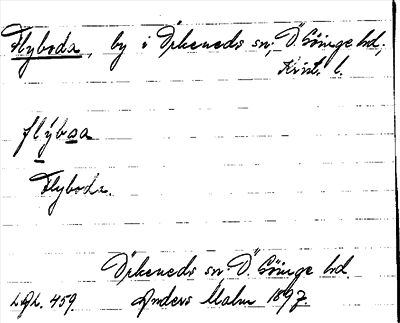 Flyboda, by i Örkeneds sn, Ö. Göinge hd,
Krist. l.
flýbɷa
Flyboda.
Örkeneds sn Ö. Göinge hd.
LGL. 459. Anders Malm 1897.